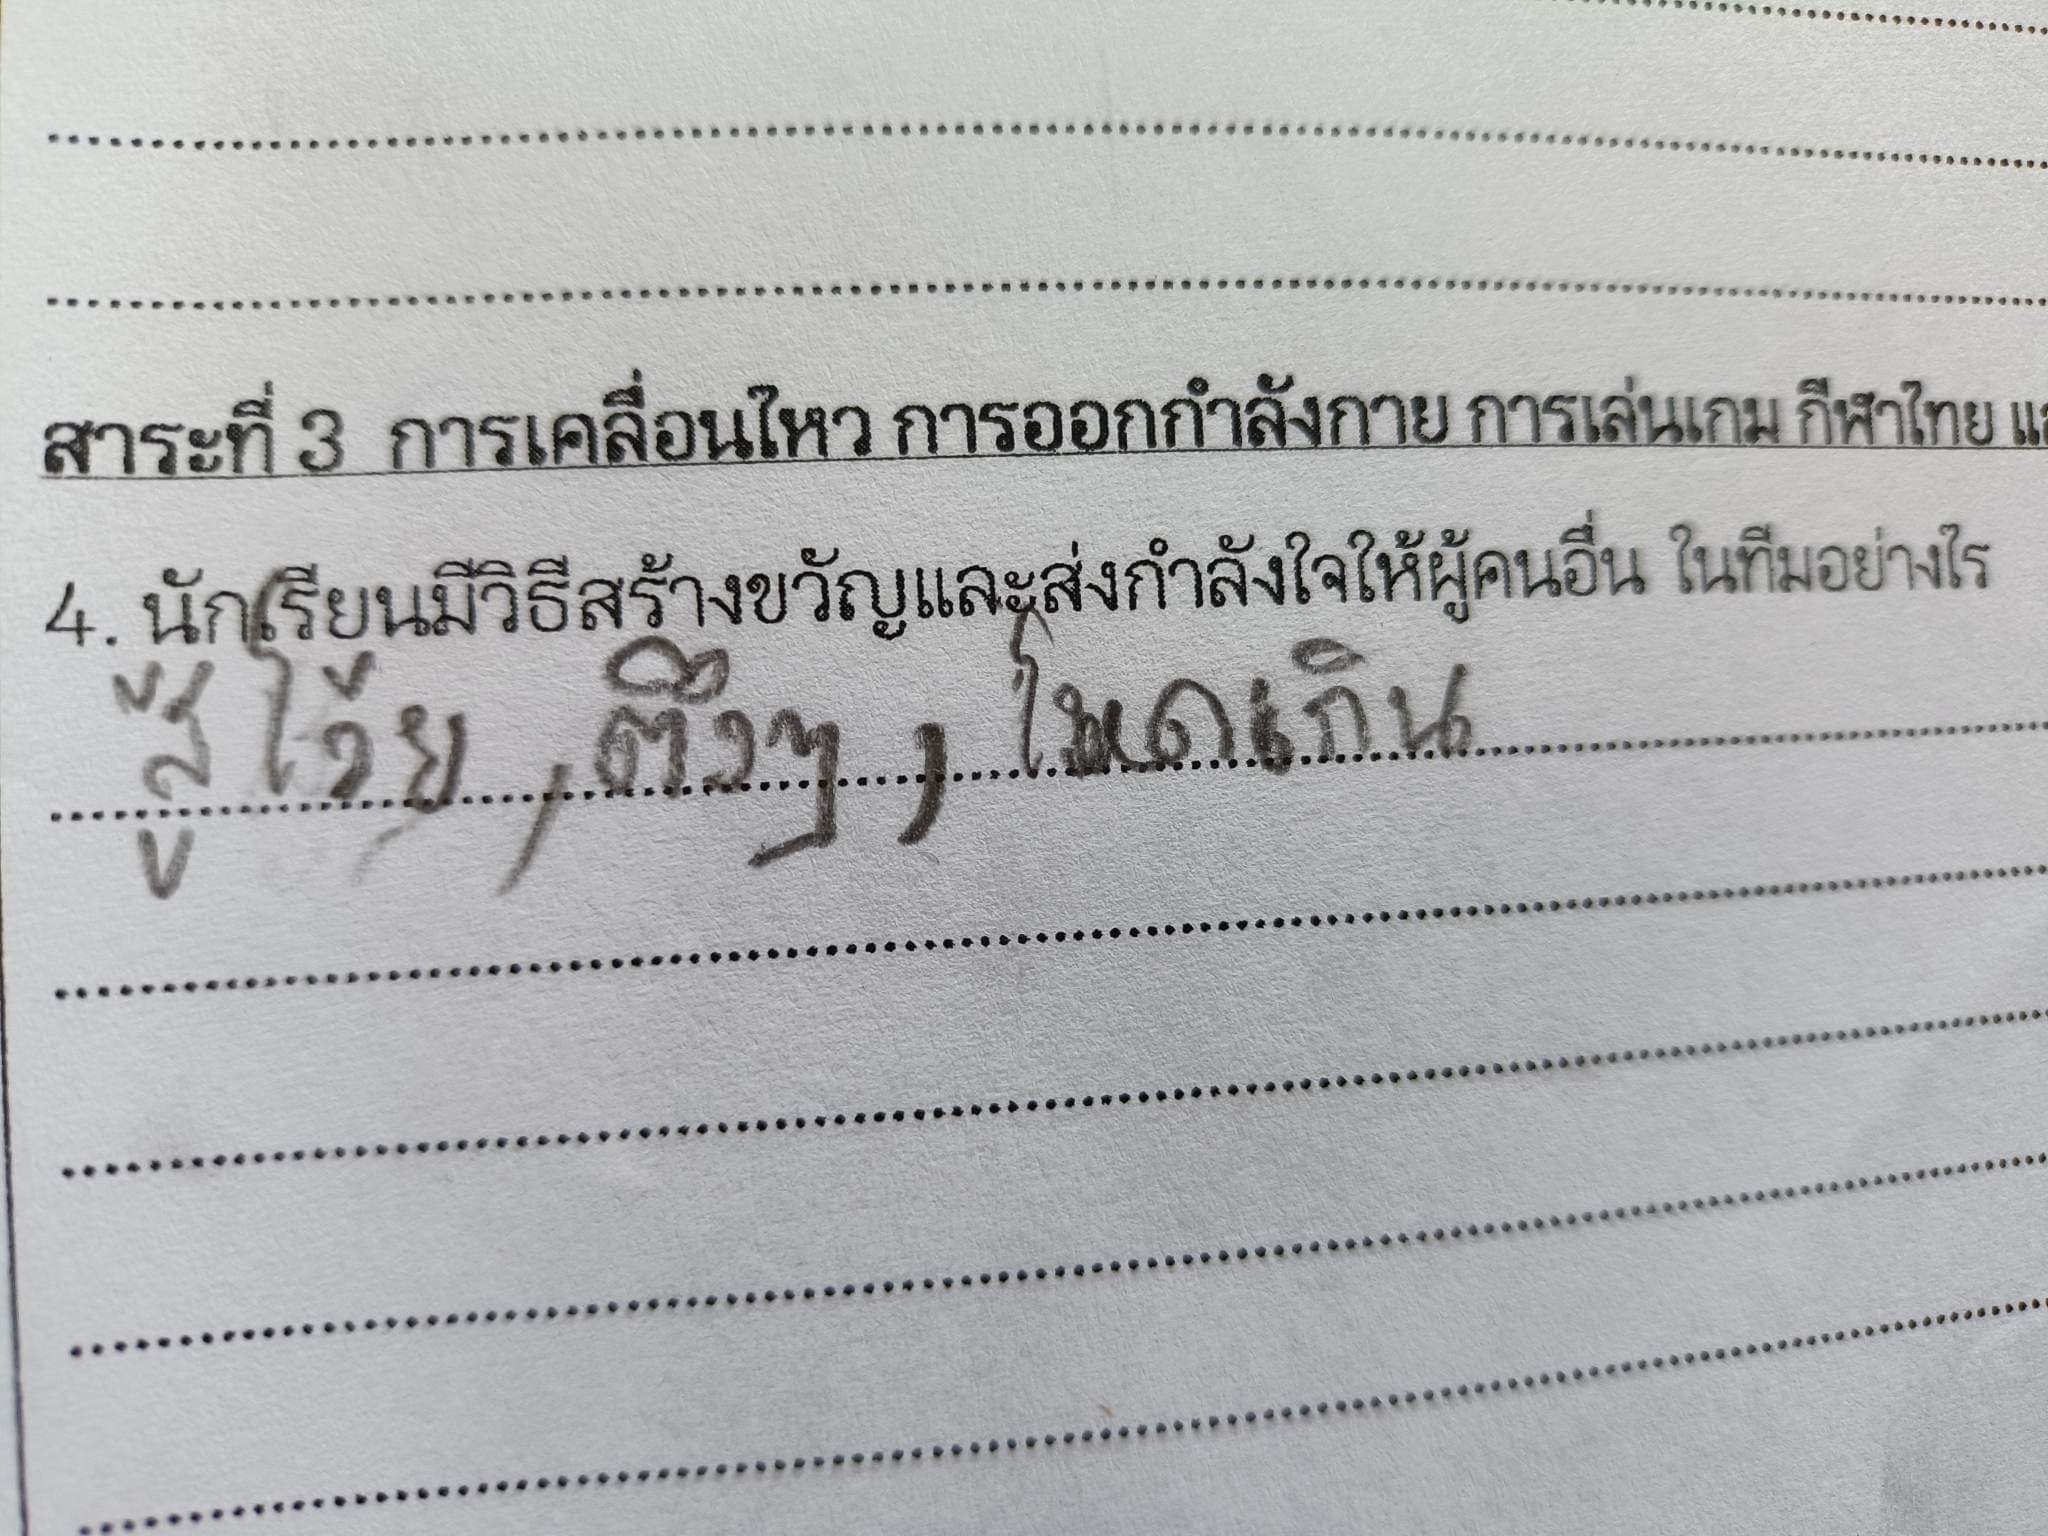 สาระที่ 3 การเคลื่อนไหว การออกกำลังกาย การเล่นเกม กีฬาไทย แล
4. นักเรียนมีวิธีสร้างขวัญและส่งกำลังใจให้ผู้คนอื่น ในทีมอย่างไร
สู้โว้ย , ตึงๆ , โหดเกิน